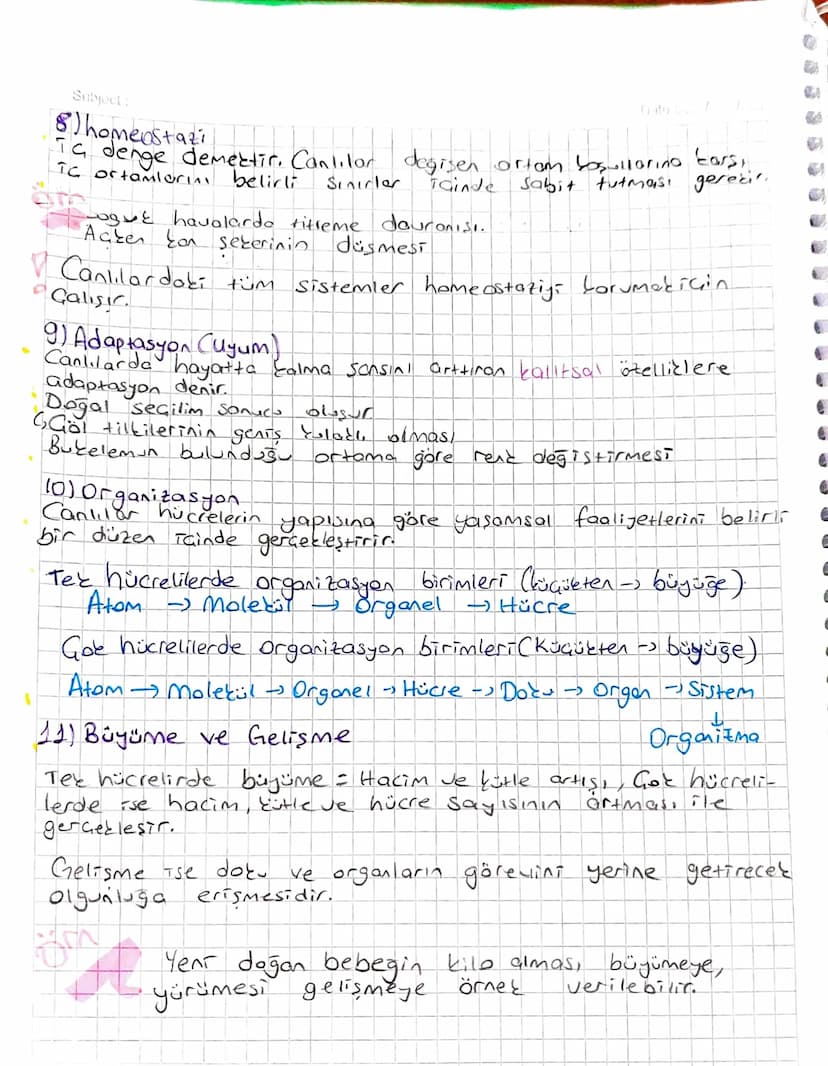 Subject:
8) homeostazi
İç denge demektir. Canlılar değişen ortam koşullarına karşı
iç ortamlarını belirli sınırlar içinde sabit tutması gerekir.
örn
Soğuk havalarda titreme davranışı.
Açken kan şekerinin düşmesi
! Canlılardaki tüm sistemler homeostaziyi korumak için
çalışır.
9) Adaptasyon (Uyum)
Canlılarda hayatta kalma şansını arttıran kalıtsal özelliklere
adaptasyon denir.
Doğal seçilim sonucu oluşur
Çöl tilkilerinin geniş kulaklı olması
Bukelemun bulunduğu ortama göre renk değiştirmesi
10) Organizasyon
Canlılar hücrelerin yapısına göre yaşamsal faaliyetlerini belirli
bir düzen içinde gerçekleştirir.
Tek hücrelilerde organizasyon birimleri (küçükten → büyüğe)
Atom → Molekül → Organel → Hücre
Çok hücrelilerde organizasyon birimleri (Küçükten → büyüğe)
Atom → Molekül → Organel → Hücre → Doku → Organ → Sistem
↓
Organizma
11) Büyüme ve Gelişme
Tek hücrelirde büyüme = Hacim ve kütle artışı, Çok hücreli-
lerde ise hacim, kütle ve hücre sayısının artması ile
gerçekleşir.
Gelişme ise doku ve organların görevini yerine getirecek
olgunluğa erişmesidir.
örn
Yeni doğan bebeğin kilo alması büyümeye,
yürümesi gelişmeye örnek verilebilir.